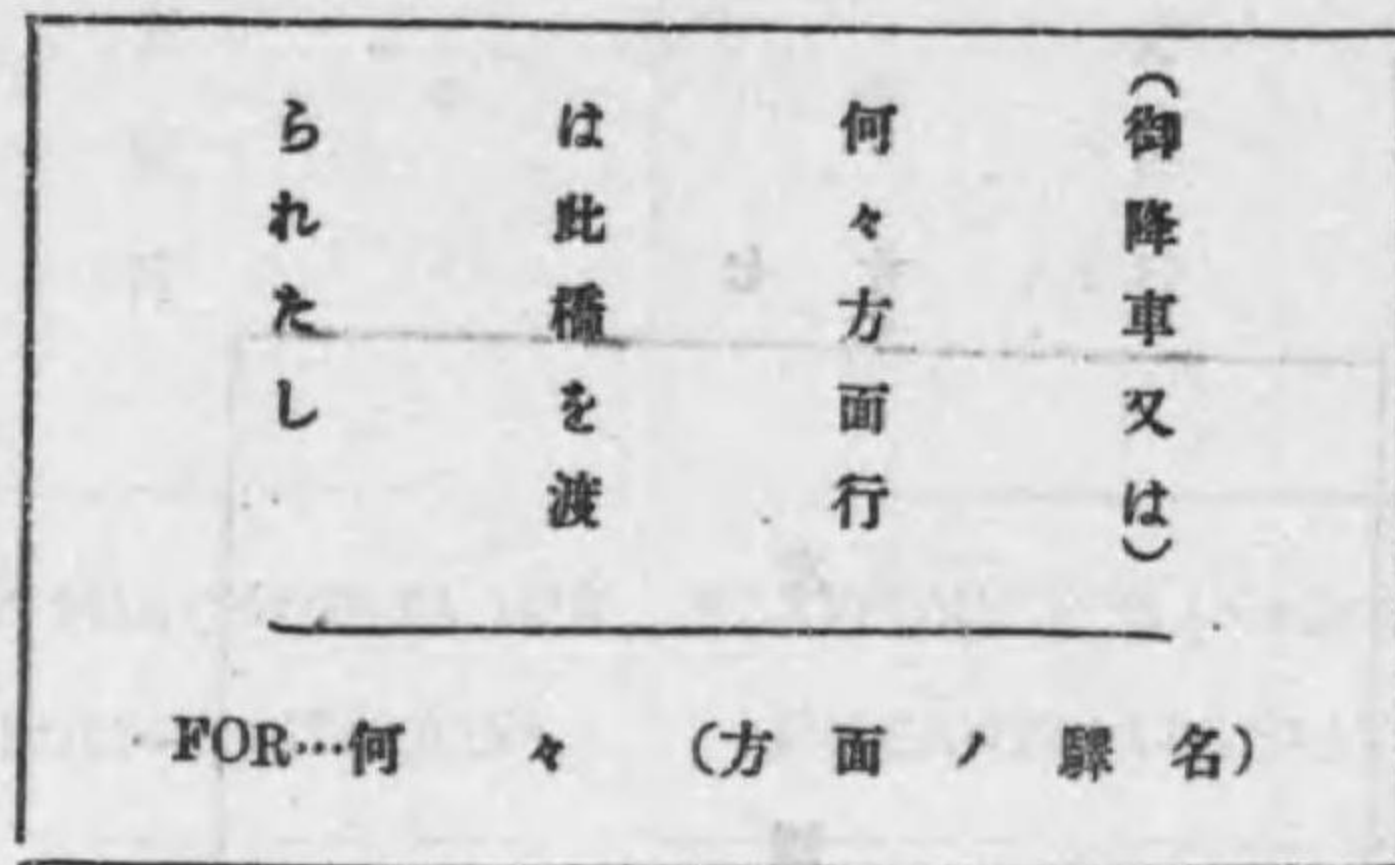 (御降車又は)
何々方面行
は此橋を渡
られたし
FOR…何々(方面ノ驛名)